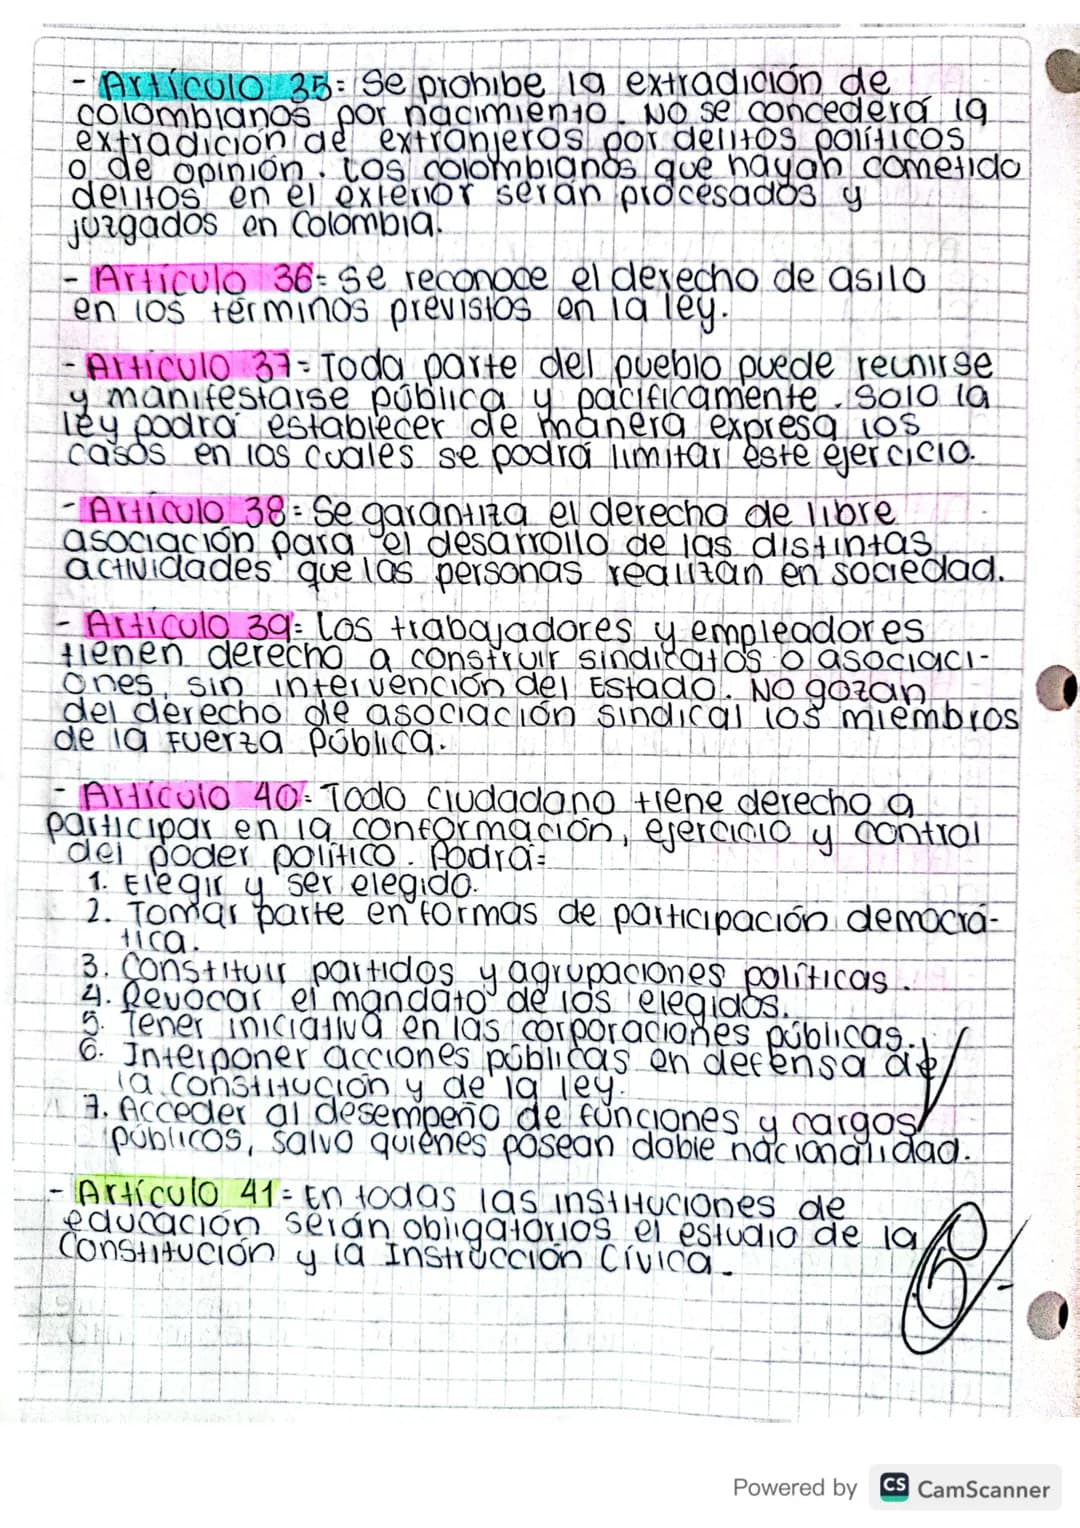 - Artículo 35: Se prohibe la extradición de
colombianos por nacimiento. No se concederá la
extradición de extranjeros por delitos políticos
o de opinión. Los colombianos que hayan cometido
delitos en el exterior serán procesados y
juzgados en Colombia.
- Artículo 36: Se reconoce el derecho de asilo
en los términos previstos en la ley.
- Artículo 37: Toda parte del pueblo puede reunirse
y manifestarse pública y pacíficamente. Solo la
ley podrá establecer de manera expresa los
casos en los cuales se podrá limitar este ejercicio.
- Artículo 38: Se garantiza el derecho de libre
asociación para el desarrollo de las distintas
actividades que las personas realizan en sociedad.
- Artículo 39: Los trabajadores y empleadores
tienen derecho a construir sindicatos o asociaci-
ones, sin intervención del Estado. No gozan
del derecho de asociación sindical los miembros
de la Fuerza Pública.
- Artículo 40: Todo ciudadano tiene derecho a
participar en la conformación, ejercicio y control
del poder político. Podrá:
1. Elegir y ser elegido.
2. Tomar parte en formas de participación democrá-
tica.
3. Constituir partidos y agrupaciones políticas.
4. Revocar el mandato de los elegidos.
5. Tener iniciativa en las corporaciones públicas.
6. Interponer acciones públicas en defensa de
la constitución y de la ley.
7. Acceder al desempeño de funciones y cargos
públicos, salvo quienes posean doble nacionalidad.
- Artículo 41: En todas las instituciones de
educación serán obligatorios el estudio de la
Constitución y la Instrucción Cívica.
Powered by CS CamScanner